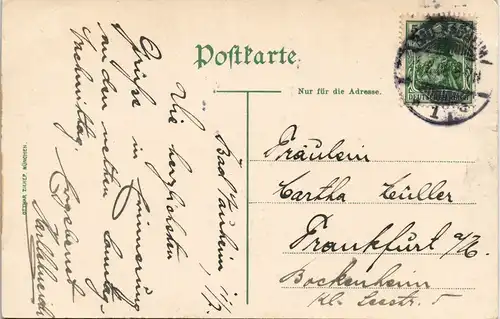 Postkarte
Nur für die Adresse.
Bad Nauheim,
Die herzlichsten
Grüße in Erinnerung
an den netten Sonntag-
Nachmittag
Ergebenst
OTTMAR ZIEHER, MÜNCHEN.
Fräulein
Martha Müller
Frankfurt a/M.
Bockenheim
Kl. Seestr. 5